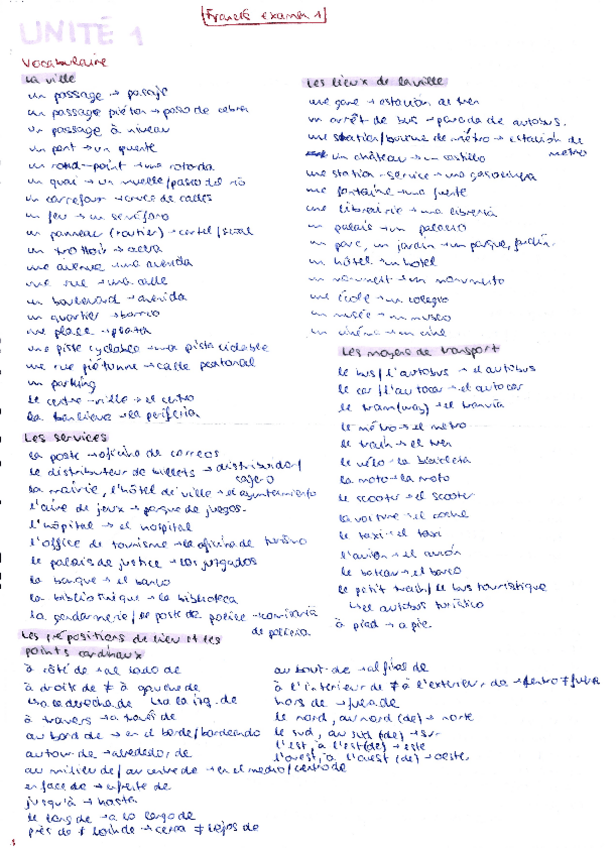 Francés examen 1
UNITÉ 1
Vocabulaire
La ville
un passage → pasaje
un passage piéton → paso de cebra
un passage à niveau
un pont → un puente
un rond-point → una rotonda
un quai → un muelle/paseo del río
un carrefour → cruce de calles
un feu → un semáforo
un panneau (routier) → cartel/señal
un trottoir → acera
une avenue → una avenida
une rue → una calle
un boulevard → avenida
un quartier → barrio
une place → plaza
une piste cyclable → una pista ciclable
une rue piétonne → calle peatonal
un parking
le centre-ville → el centro
la banlieue → la periferia
Les services
la poste → oficina de correos
le distributeur de billets → distribuidor/
cajero
la mairie, l'hôtel de ville → el ayuntamiento
l'aire de jeux → parque de juegos.
l'hôpital → el hospital
l'office de tourisme → la oficina de turismo
le palais de justice → los juzgados
la banque → el banco
la bibliothèque → la biblioteca
la gendarmerie/le poste de police → comisaría
de policía
Les lieux de la ville
une gare → estación de tren
un arrêt de bus → parada de autobus.
une station/bouche de métro → estación de
metro
un château → un castillo
une station-service → una gasolinera
une fontaine → una fuente
une librairie → una librería
un palais → un palacio
un parc, un jardin → un parque, jardín.
un hôtel → un hotel
un monument → un monumento
une école → un colegio
un musée → un museo
un cinéma → un cine
Les moyens de transport
le bus/l'autobus → el autobus
le car/l'autocar → el autocar
le tram(way) → el tranvía
le métro → el metro
le train → el tren
le vélo → la bicicleta
la moto → la moto
le scooter → el scooter
la voiture → el coche
le taxi → el taxi
l'avion → el avión
le bateau → el barco
le petit train/le bus touristique
↳ el autobus turístico
à pied → a pie.
Les prépositions de lieu et les
points cardinaux
à côté de → al lado de
à droite de ≠ à gauche de
↳ a la derecha de ↳ a la izq. de
à travers → a través de
au bord de → en el borde/bordeando
autour de → alrededor de
au milieu de/au centre de → en el medio/centro de
en face de → enfrente de
jusqu'à → hasta
le long de → a lo largo de
près de ≠ loin de → cerca ≠ lejos de
au bout de → al final de
à l'intérieur de ≠ à l'extérieur de → dentro ≠ fuera
hors de → fuera de
le nord, au nord (de) → norte
le sud, au sud (de) → sur
l'est, à l'est (de) → este
l'ouest, à l'ouest (de) → oeste.